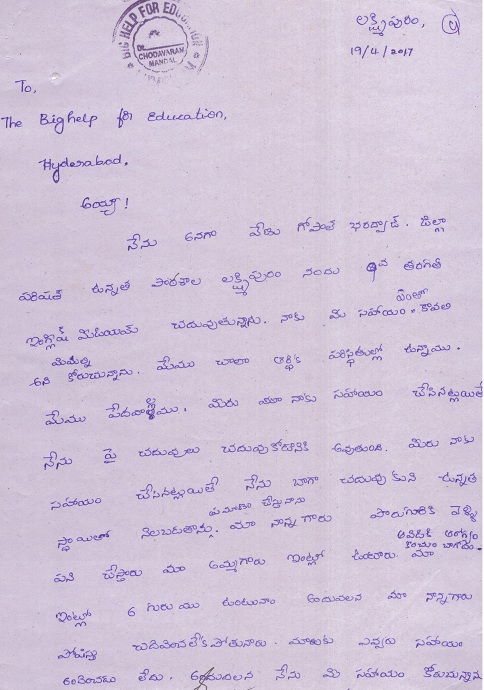 BIG HELP FOR EDUCATION
CHODAVARAM
MANDAL
లక్ష్మీపురం,
19/4/2017
To,
The Big help for Education,
Hyderabad.
అయ్యా!
నేను అనగా వేడు గోపాల్ భరద్వాజ్. జిల్లా
పరిషత్ ఉన్నత పాఠశాల లక్ష్మీపురం నందు 9వ తరగతి
ఇంగ్లీష్ మీడియమ్ చదువుతున్నాను. నాకు మీ సహాయం కావాలి
అని మిమ్మల్ని కోరుచున్నాను. మేము చాలా ఆర్థిక పరిస్థితుల్లో ఉన్నాము.
మేము పేదవాళ్ళము, మీరు మా నాకు సహాయం చేసినట్లయితే
నేను పై చదువులు చదువుకోడానికి అవుతుంది. మీరు నాకు
సహాయం చేసినట్లయితే నేను బాగా చదువుకుని ఉన్నత
స్థాయిలో నిలబడతాను. మా నాన్నగారు పొరుగూరికి వెళ్ళి
పని చేస్తారు మా అమ్మగారు ఇంట్లో ఉంటారు. ఆవిడకి ఆరోగ్యం కొంచెం బాగోదు. మా
ఇంట్లో 6 గురు ము ఉంటున్నాం అందువలన మా నాన్నగారు
చదివించలేకపోతున్నారు. మాకు ఎవ్వరు సహాయం
అందించడం లేదు. అందువలన నేను మీ సహాయం కోరుచున్నాను